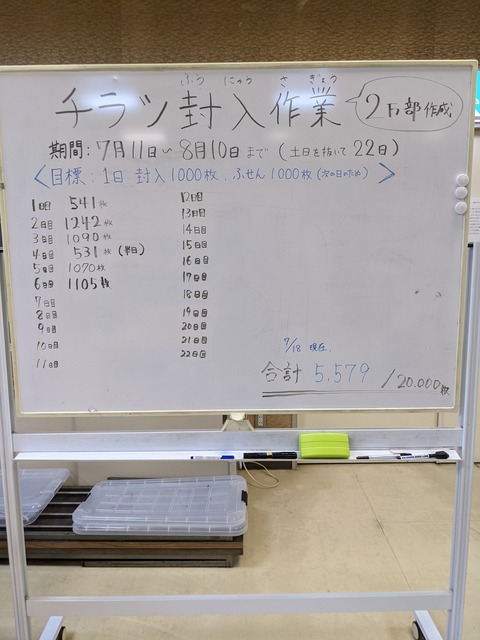 ふう にゅう さ ぎょう
チラシ封入作業
2万部作成
期間:7月11日〜8月10日まで(土日を抜いて22日)
<目標:1日 封入1000枚、ふせん1000枚(次の日のため)>
1日目 541枚
2日目 1242枚
3日目 1090枚
4日目 531枚(半日)
5日目 1070枚
6日目 1105枚
7日目
8日目
9日目
10日目
11日目
12日目
13日目
14日目
15日目
16日目
17日目
18日目
19日目
20日目
21日目
22日目
7/18 現在.
合計 5.579 /20.000枚